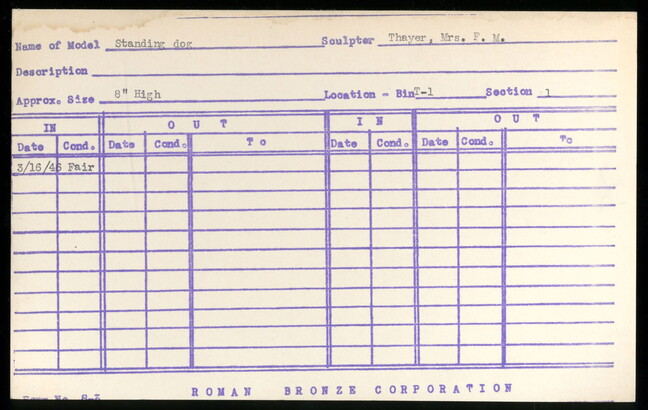 Name of Model Standing dog Sculptor Thayer, Mrs. F. M.
Description
Approx. Size 8" High Location - Bin T-1 Section 1
IN OUT IN OUT
Date Cond. Date Cond. To Date Cond. Date Cond. To
3/16/46 Fair
ROMAN BRONZE CORPORATION
Form No. S-3